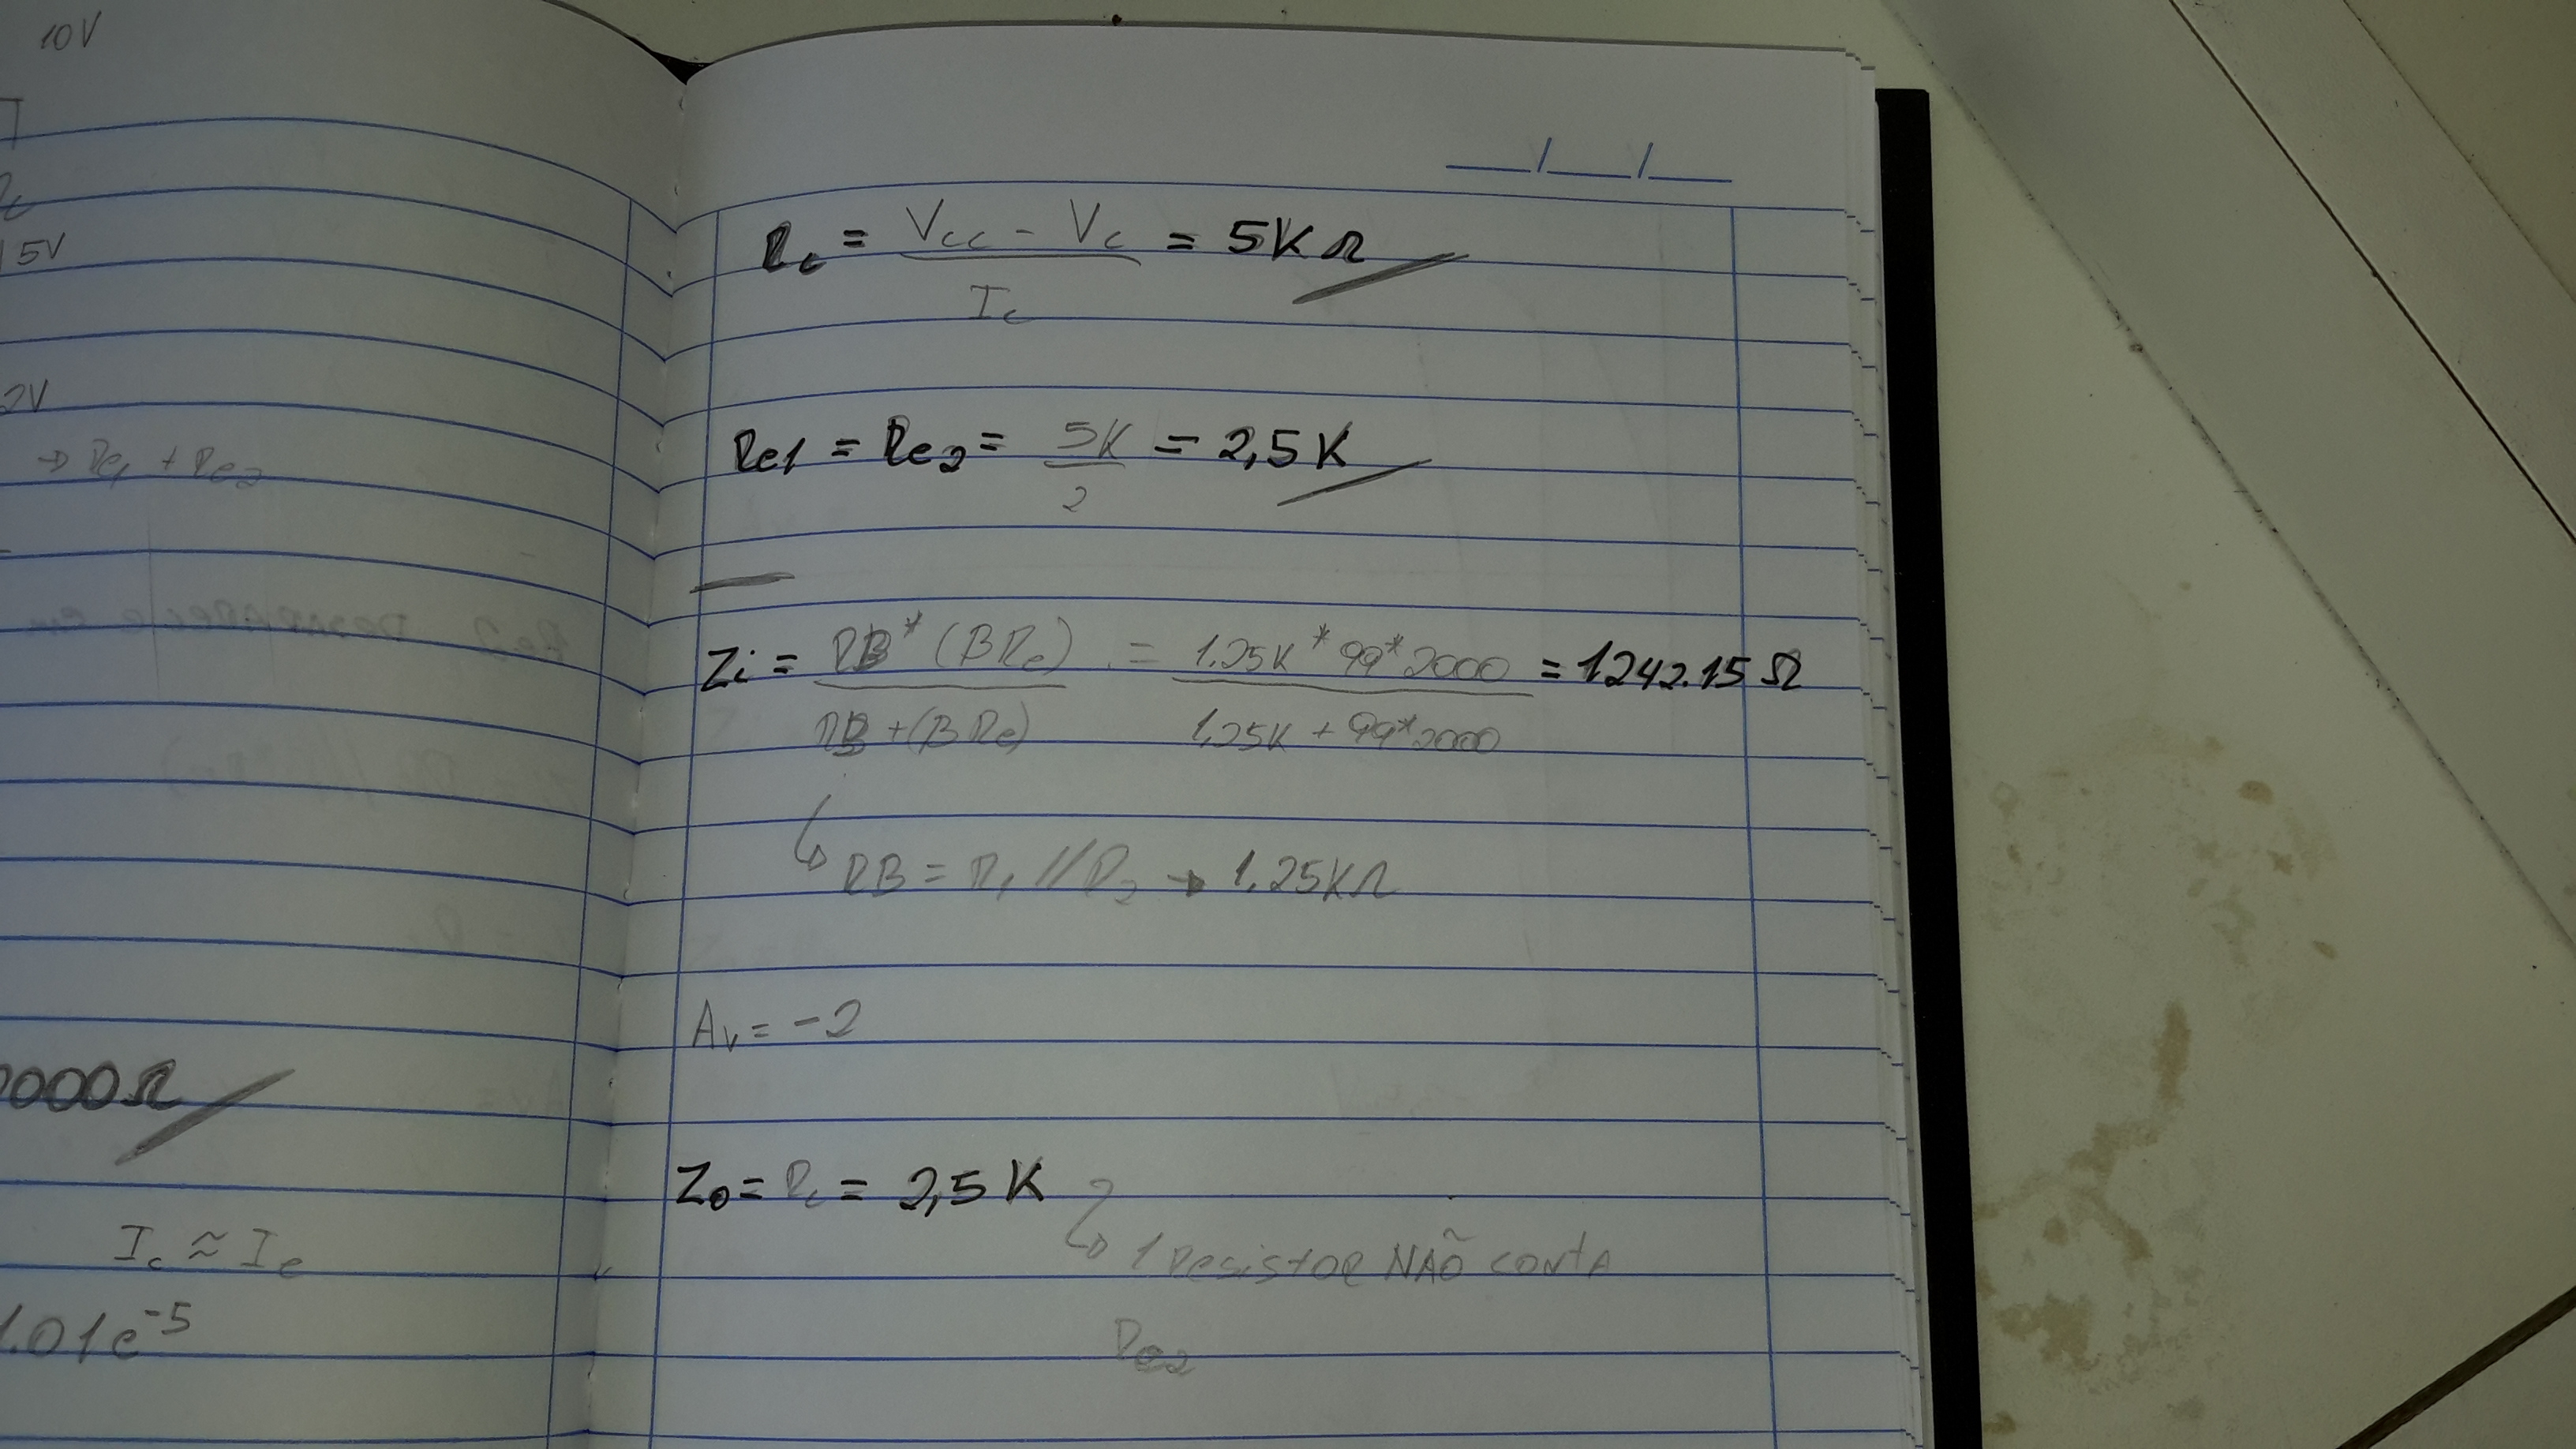 10V
5V
2V
→ Re1 + Re2
000Ω
Ic ≈ Ie
1.01e^-5
__/__/__
Rc = (Vcc - Vc) / Ic = 5KΩ
Re1 = Re2 = 5K / 2 = 2,5K
Zi = RB * (BRe) / RB + (BRe) = 1.25K * 99 * 2000 / 1,25K + 99 * 2000 = 1242.15 Ω
↳ RB = R1 // R2 → 1.25KΩ
Av = -2
Zo = Rc = 2,5K
↳ 1 Resistor NÃO conta
Re2